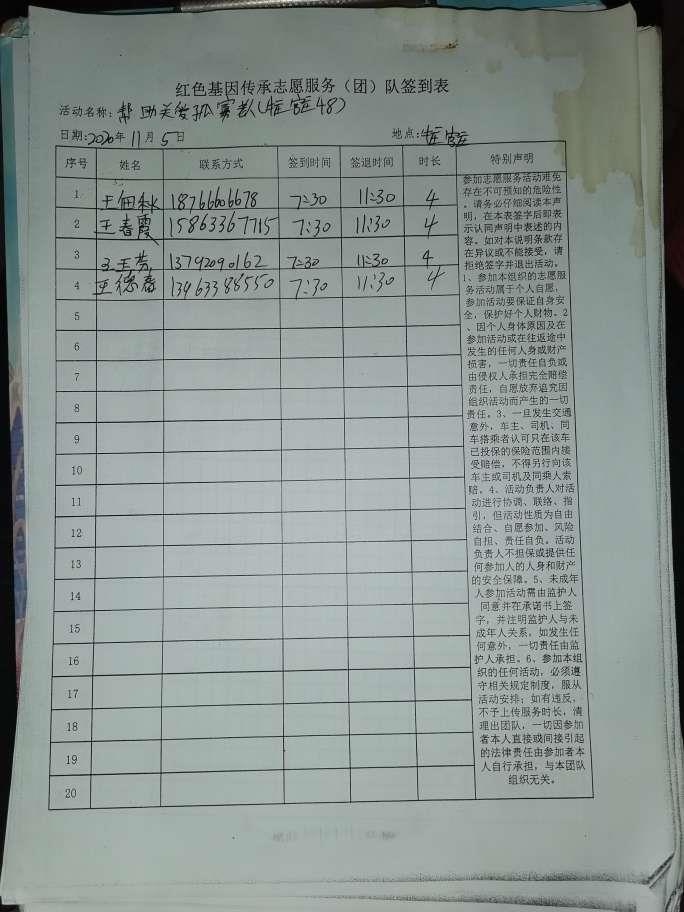 红色基因传承志愿服务（团）队签到表
活动名称：帮助关爱孤寡老人(48)
日期:2020年11月5日
地点:
序号 姓名 联系方式 签到时间 签退时间 时长 特别声明
1 王佃秋 18766606678 7:30 11:30 4
2 王春霞 15863367715 7:30 11:30 4
3 王芳 13792090162 7:30 11:30 4
4 王德春 13963388550 7:30 11:30 4
5
6
7
8
9
10
11
12
13
14
15
16
17
18
19
20
参加志愿服务活动难免
存在不可预知的危险性
。请务必仔细阅读本声
明，在本表签字后即表
示认同声明中表述的内
容。如对本说明条款存
在异议或不能接受，请
拒绝签字并退出活动。
1、参加本组织的志愿服
务活动属于个人自愿，
参加活动要保证自身安
全，保护好个人财物。2
、因个人身体原因及在
参加活动或在往返途中
发生的任何人身或财产
损害，一切责任自负或
由侵权人承担完全赔偿
责任，自愿放弃追究因
组织活动而产生的一切
责任。3、一旦发生交通
意外，车主、司机、同
车搭乘者认可只在该车
已投保的保险范围内接
受赔偿，不得另行向该
车主或司机及同乘人索
赔。4、活动负责人对活
动进行协调、联络、指
引，但活动性质为自由
结合、自愿参加、风险
自担、责任自负。活动
负责人不担保或提供任
何参加人的人身和财产
的安全保障。5、未成年
人参加活动需由监护人
同意并在承诺书上签
字，并注明监护人与未
成年人关系，如发生任
何意外，一切责任由监
护人承担。6、参加本组
织的任何活动，必须遵
守相关规定制度，服从
活动安排；如有违反，
不予上传服务时长，清
理出团队，一切因参加
者本人直接或间接引起
的法律责任由参加者本
人自行承担，与本团队
组织无关。